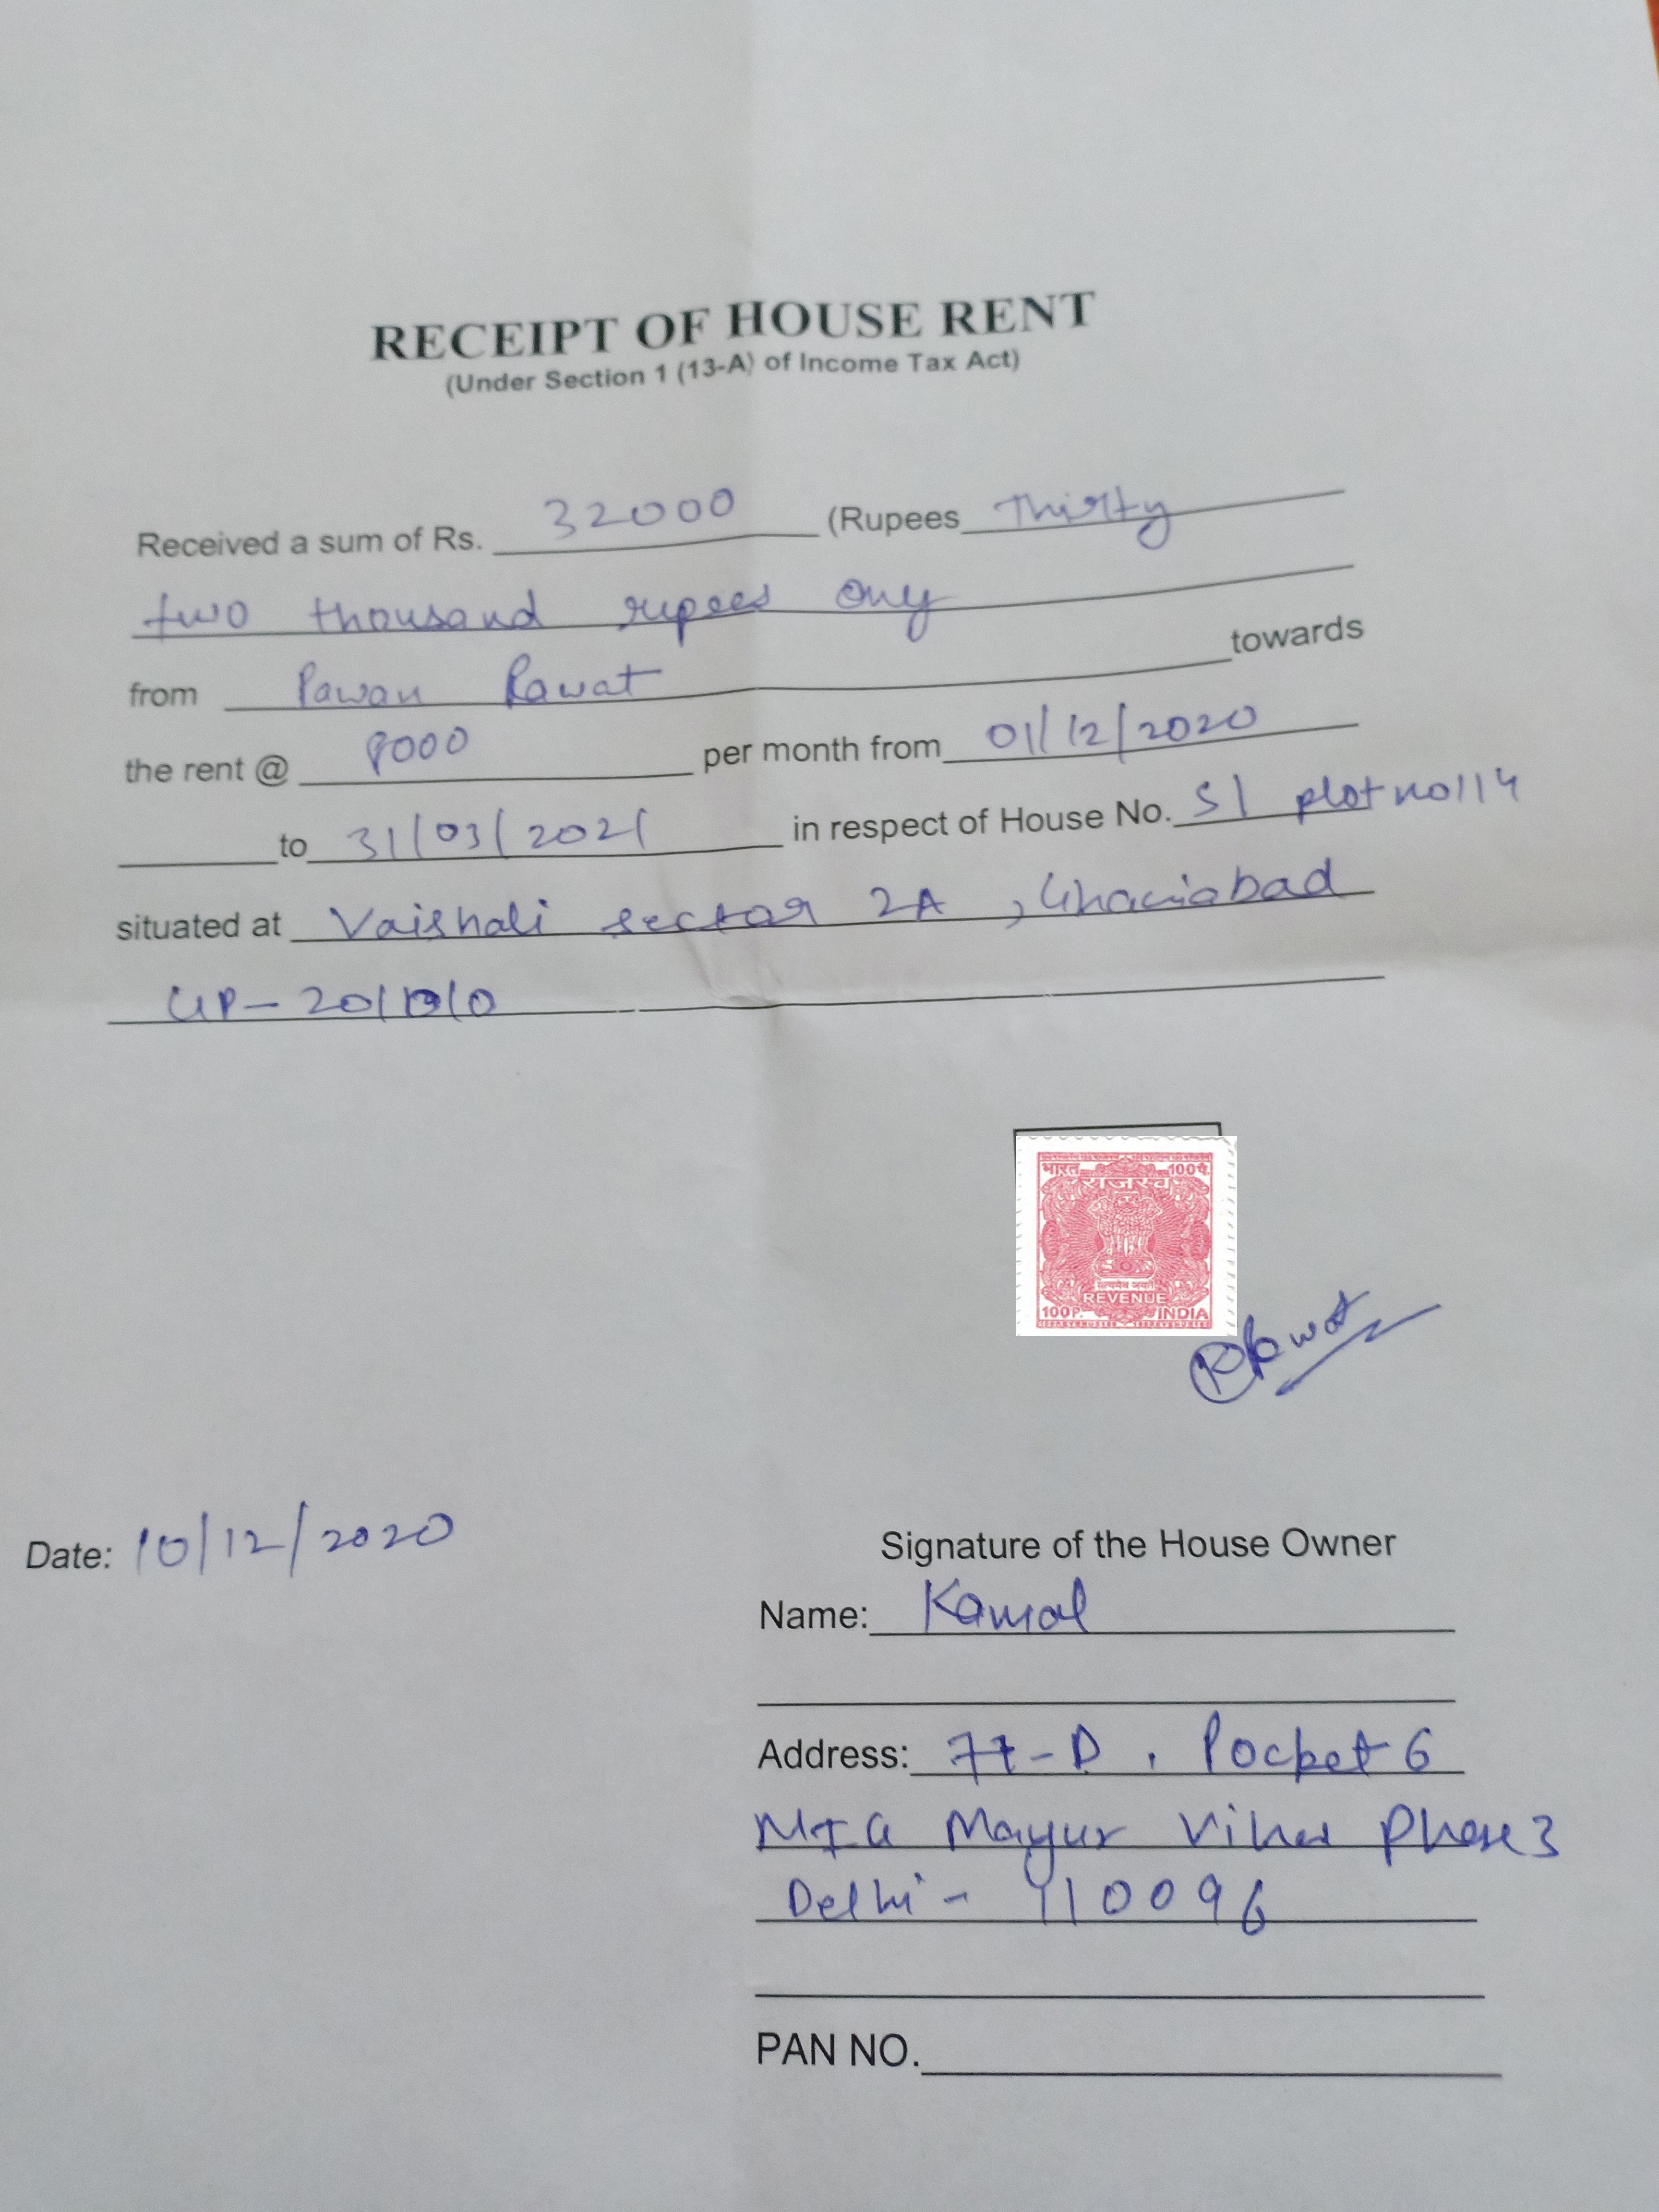 RECEIPT OF HOUSE RENT
(Under Section 1 (13-A) of Income Tax Act)
Received a sum of Rs. 32000 (Rupees Thirty
two thousand rupees only
from Pawan Rawat towards
the rent @ 8000 per month from 01/12/2020
to 31/03/2021 in respect of House No. S1 plot no 114
situated at Vaishali sector 2A, Ghaziabad
UP- 201010
भारत 100 पै.
राजस्व
सत्यमेव जयते
REVENUE
100 P. INDIA
Rawat
Date: 10/12/2020
Signature of the House Owner
Name: Kamal
Address: 77-D, Pocket 6
MIG Mayur Vihar Phase 3
Delhi - 110096
PAN NO.